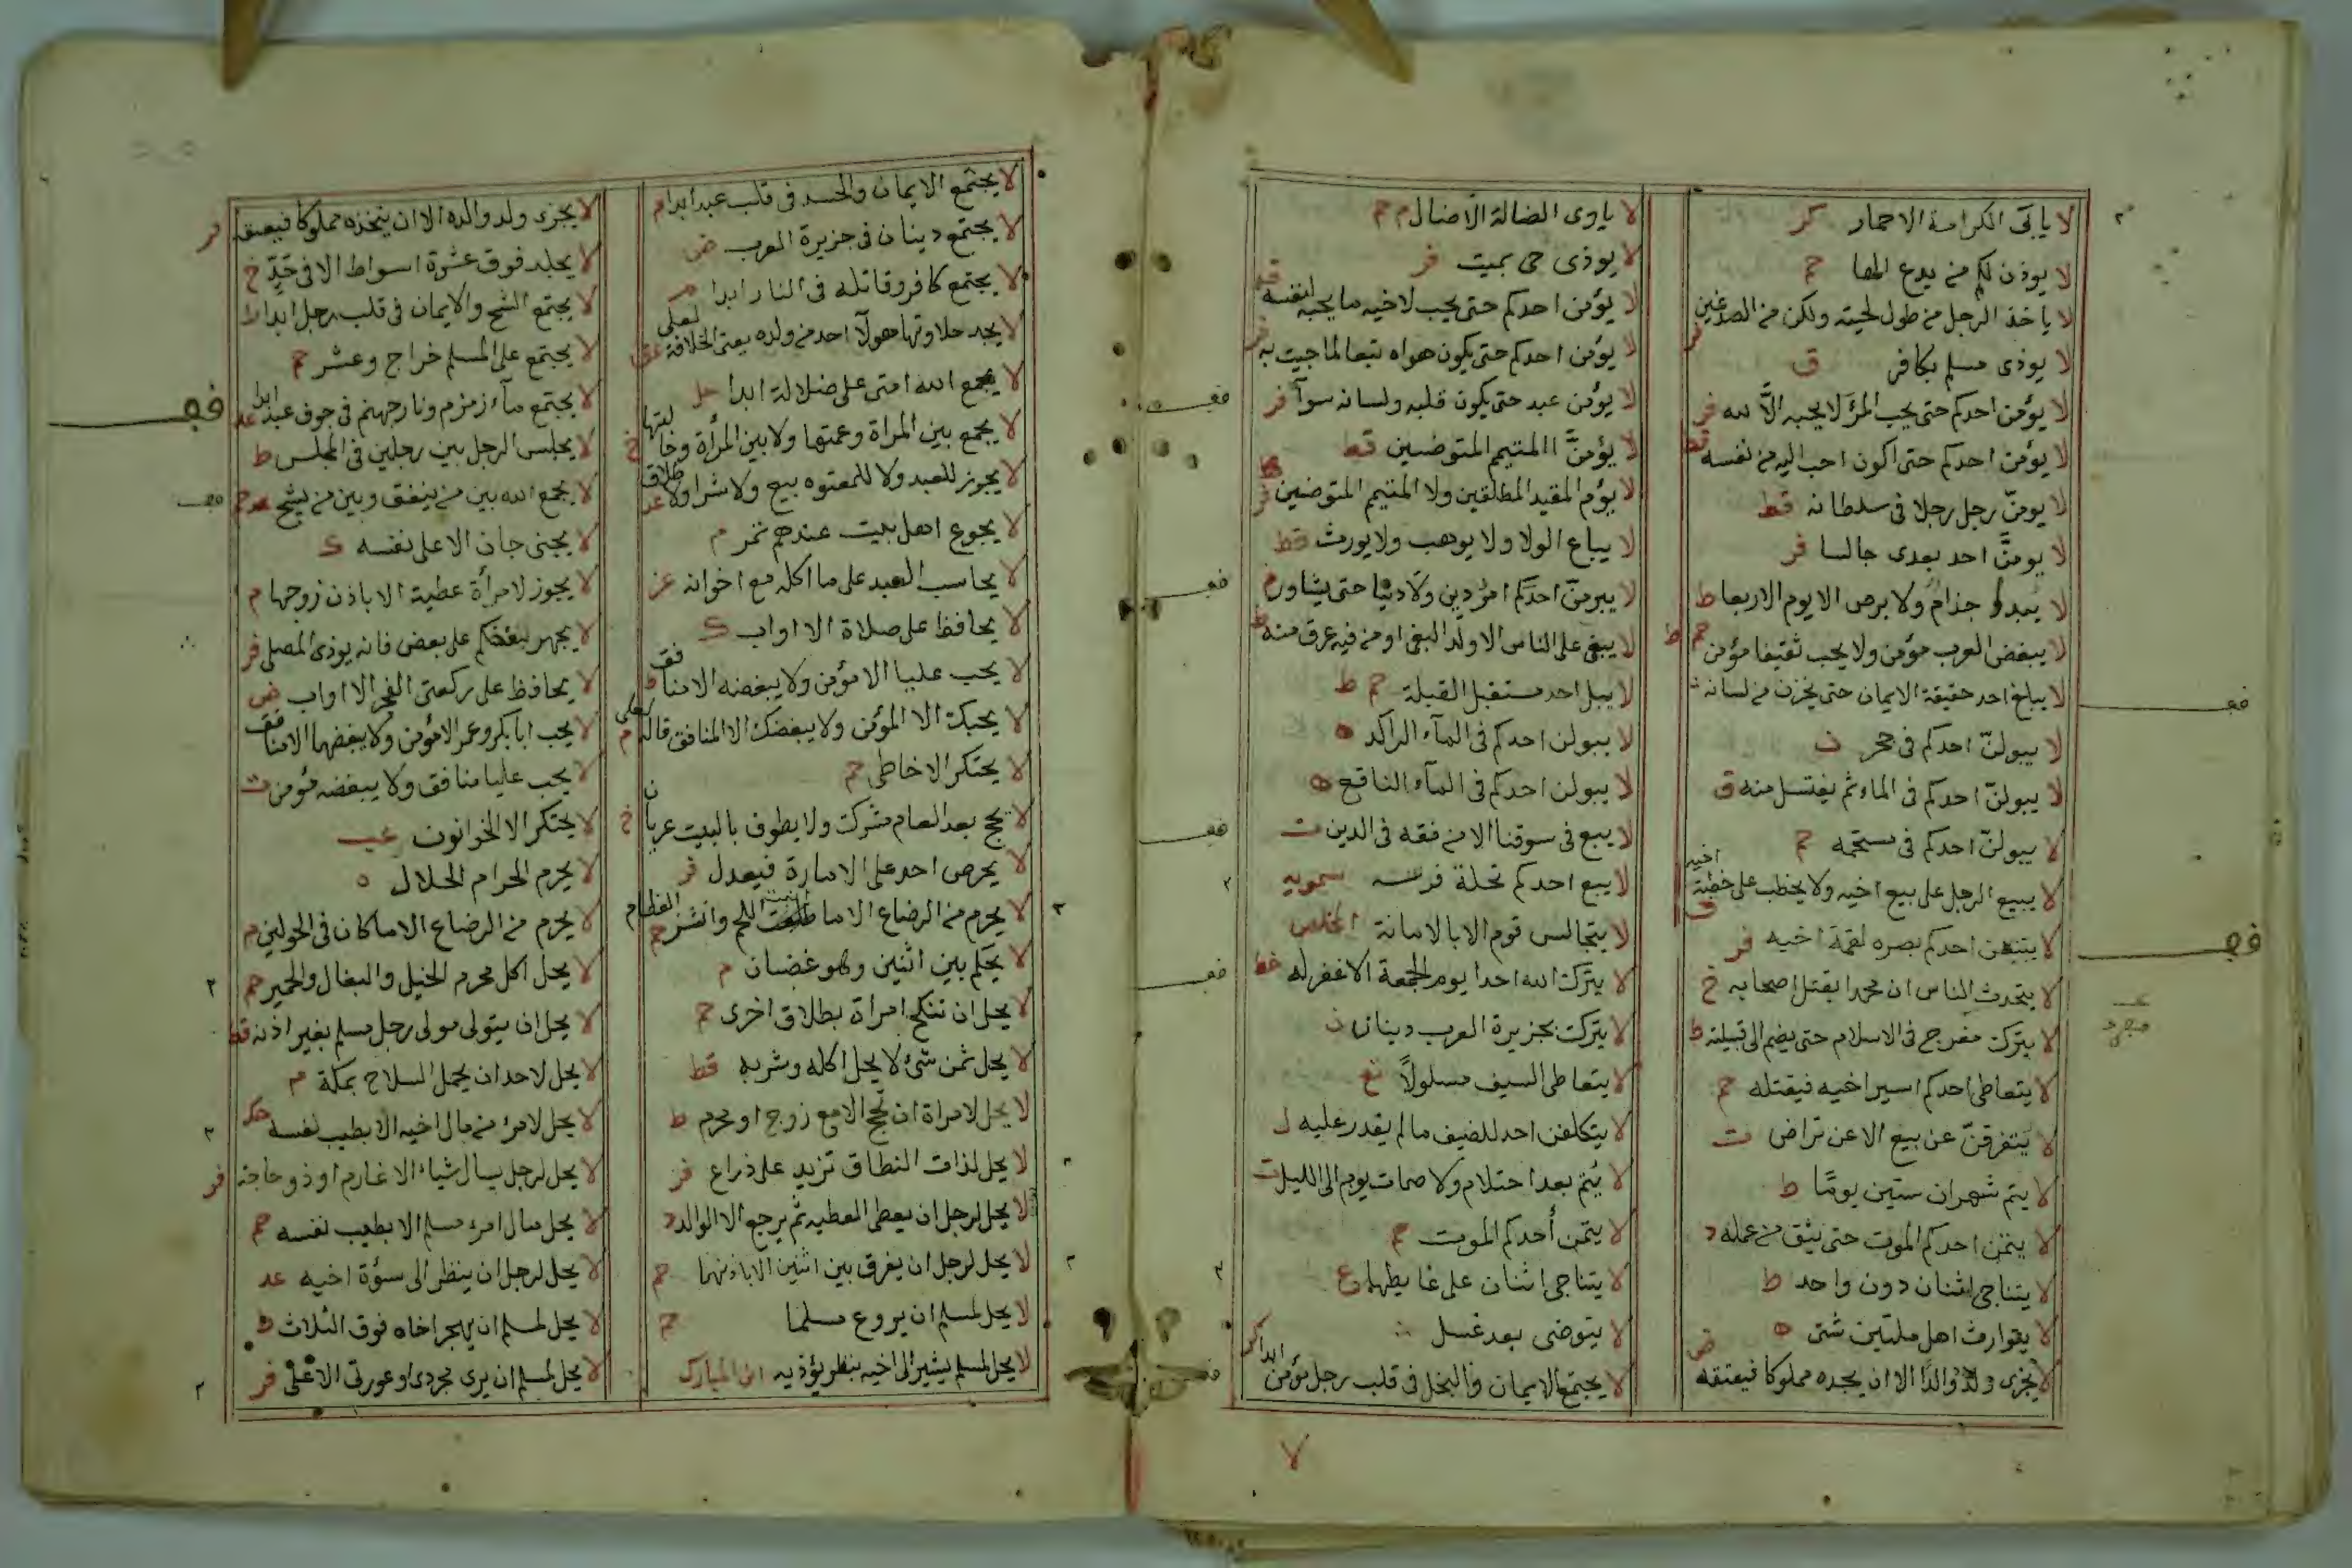 لا يابى الكرامة الا حمار كر
لا يوذن لكم من يدع الها حم
لا ياخذ الرجل من طول لحيته ولكن من الصدغين
لا يوذى مسلم بكافر ق
لا يؤمن احدكم حتى يحب المرء لا يحبه الا لله فر
لا يؤمن احدكم حتى اكون احب اليه من نفسه
لا يومن رجل رجلا فى سلطانه قط
لا يومن احد بعدى جالسا فر
لا يبدو جذام ولا برص الا يوم الاربعا ط
لا يبغض العرب مؤمن ولا يحب ثقيفا مؤمن
لا يبلغ احد حقيقة الايمان حتى يخزن من لسانه
لا يبولن احدكم فى جحر ن
لا يبولن احدكم فى الماء ثم يغتسل منه ق
لا يبولن احدكم فى مستحمه حم
لا يبيع الرجل على بيع اخيه ولا يخطب على خطبة اخيه
لا يتبعن احدكم بصره لقمة اخيه فر
لا يتحدث الناس ان محمدا يقتل اصحابه خ
لا يترك مفرج فى الاسلام حتى يضم الى قبيلة ط
لا يتعاطى احدكم اسير اخيه فيقتله حم
لا يتفرقن عن بيع الا عن تراض ت
لا يتم شهران ستين يوما ط
لا يتمن احدكم الموت حتى يثق من عمله د
لا يتناجى اثنان دون واحد ط
لا يتوارث اهل ملتين شتى ه
لا يجزى ولد والدا الا ان يجده مملوكا فيعتقه
لا ياوى الضالة الا ضال م حم
لا يوذى حى بميت فر
لا يؤمن احدكم حتى يحب لاخيه ما يحبه لنفسه
لا يؤمن احدكم حتى يكون هواه تبعا لما جيت به
لا يؤمن عبد حتى يكون قلبه ولسانه سوآ فر
لا يؤمن المتيم المتوضين قط
لا يؤم المقيد المطلقين ولا المتيم المتوضين
لا يباع الولا ولا يوهب ولا يورث قط
لا يبرمن احدكم امر دين ولا دنيا حتى يشاور م
لا يبغى على الناس الا ولد البغى او من فيه عرق منه
لا يبل احد مستقبل القبلة حم ط
لا يبولن احدكم فى المآء الراكد ه
لا يبولن احدكم فى المآء الناقع ه
لا يبع فى سوقنا الا من فقه فى الدين ت
لا يبع احدكم نحلة فرسه سمويه
لا يتجالس قوم الا بالامانة المخلص
لا يترك الله احدا يوم الجمعة الا غفر له خط
لا يترك بجزيرة العرب دينان
لا يتعاطى السيف مسلولا
لا يتكلفن احد للضيف ما لم يقدر عليه
لا يتم بعد احتلام ولا صمات يوم الى الليل
لا يتمن أحدكم الموت حم
لا يتناجى اثنان على غايطهما ع
لا يتوضى بعد غسل
لا يجتمع الايمان والبخل فى قلب رجل مؤمن ابدا
لا
لا يجتمع الايمان والحسد فى قلب عبد ابدا م
لا يجتمع دينان فى جزيرة العرب ض
لا يجتمع كافر وقاتله فى النار ابدا م
لا يجد حلاوتها هولآ احد من ولده يعنى الخلافة لعلى عق
لا يجمع الله امتى على ضلالة ابدا حل
لا يجمع بين المراة وعمتها ولا بين المرأة وخالتها خ
لا يجوز للعبد ولا للمعتوه بيع ولا شرا ولا طلاق عد
لا يجوع اهل بيت عندهم تمر م
لا يحاسب العبد على ما اكله مع اخوانه عز
لا يحافظ على صلاة الا اواب ك
لا يحب عليا الا مؤمن ولا يبغضه الا منافق ط
لا يحبك الا المؤمن ولا يبغضك الا المنافق قاله لعلى م
لا يحتكر الا خاطى حم
لا يحج بعد العام مشرك ولا يطوف بالبيت عريان خ
لا يحرص احد على الامارة فيعدل فر
لا يحرم من الرضاع الا ما انبت اللحم وانشز العظام حم
لا يحكم بين اثنين وهو غضبان م
لا يحل ان تنكح امرأة بطلاق اخرى حم
لا يحل ثمن شئ لا يحل اكله وشربه قط
لا يحل لامراة ان تحج الا مع زوج او محرم ط
لا يحل لذات النطاق تزيد على ذراع فر
لا يحل لرجل ان يعطى العطيه ثم يرجع الا الوالد د
لا يحل لرجل ان يفرق بين اثنين الا باذنهما حم
لا يحل لمسلم ان يروع مسلما حم
لا يحل لمسلم يشير الى اخيه بنظر يؤذيه ابن المبارك
لا يجزى ولد والده الا ان يتخذه مملوكا فيعتقه فر
لا يجلد فوق عشرة اسواط الا فى حد خ
لا يجتمع الشح والايمان فى قلب رجل ابدا ط
لا يجتمع على المسلم خراج وعشر حم
لا يجتمع مآء زمزم ونار جهنم فى جوف عبد ابدا عد
لا يجلس الرجل بين رجلين فى المجلس ط
لا يجمع الله بين من ينفق وبين من يشح
لا يجنى جان الا على نفسه ك
لا يجوز لامرأة عطية الا باذن زوجها م
لا يجهر بعضكم على بعض فانه يوذى المصلى فر
لا يحافظ على ركعتى الفجر الا اواب ض
لا يحب ابا بكر وعمر الا مؤمن ولا يبغضهما الا منافق
لا يحب عليا منافق ولا يبغضه مؤمن ت
لا يحتكر الا الخوانون عب
لا يحرم الحرام الحلال ه
لا يحرم من الرضاع الا ما كان فى الحولين م
لا يحل اكل محرم الخيل والبغال والحمير حم
لا يحل ان يتولى مولى رجل مسلم بغير اذنه قط
لا يحل لاحد ان يحمل السلاح بمكة م
لا يحل لامرئ من مال اخيه الا بطيب نفسه حك
لا يحل لرجل يسال شياء الا غارم او ذو حاجة فر
لا يحل مال امرء مسلم الا بطيب نفسه حم
لا يحل لرجل ان ينظر الى سؤة اخيه عد
لا يحل لمسلم ان يهجر اخاه فوق الثلاث ط
لا يحل لمسلم ان يرى مجردى او عورتى الا على فر